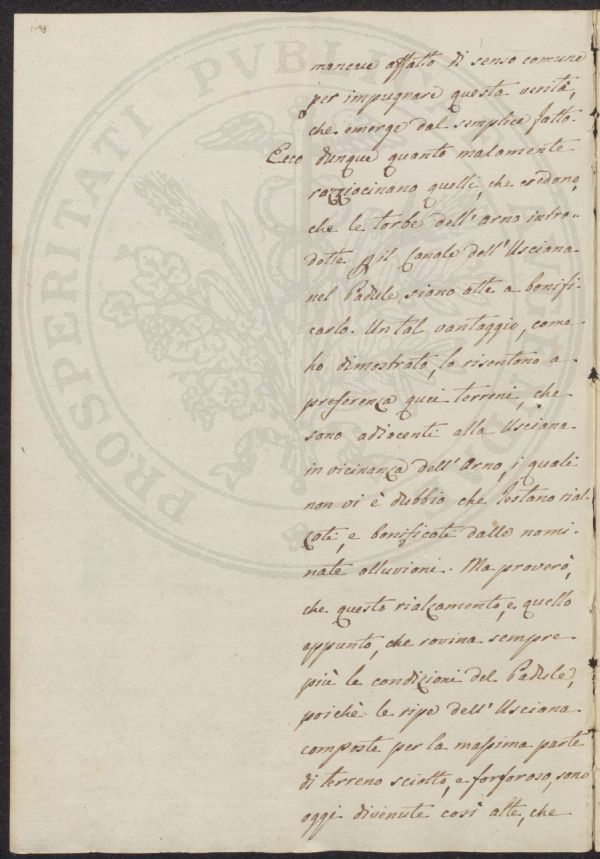 mancare affatto di senso comune
per impugnare questa verità,
che emerge dal semplice fatto.
Ecco dunque quanto malamente
razziocinano quelli, che credono,
che le torbe dell'Arno intro-
dotte per il Canale dell'Usciana
nel Padule, siano atte a bonifi-
carlo. Un tal vantaggio, come
ho dimostrato, lo risentono a
preferenza quei terreni, che
sono adiacenti alla Usciana
in vicinanza dell'Arno, i quali
non vi è dubbio che restano rial-
zati, e bonificati dalle nomi-
nate alluvioni. Ma proverò,
che questo rialzamento, e quello
appunto, che rovina sempre
più le condizioni del Padule,
poichè le ripe dell'Usciana
composte per la massima parte
di terreno sciolto, e forforoso, sono
oggi divenute così alte, che
PROSPERITATI PVBLICAE